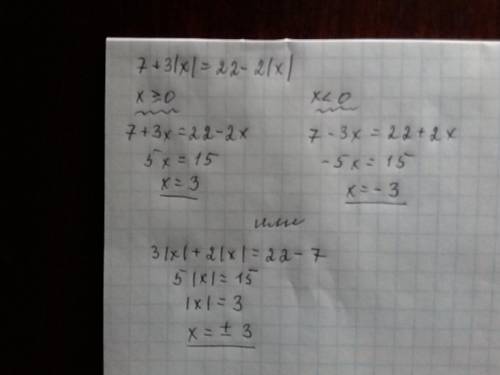 7+3|x|=22-2|x|
x≥0
7+3x=22-2x
5x=15
x=3
x<0
7-3x=22+2x
-5x=15
x=-3
или
3|x|+2|x|=22-7
5|x|=15
|x|=3
x=±3